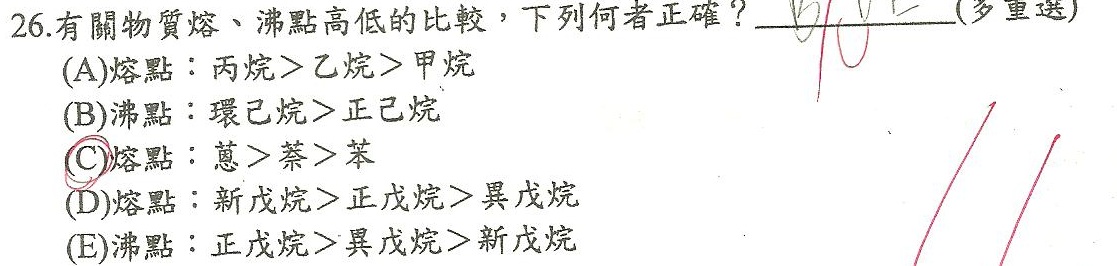 26.有關物質熔、沸點高低的比較，下列何者正確？＿＿＿＿＿(多重選)
(A)熔點：丙烷＞乙烷＞甲烷
(B)沸點：環己烷＞正己烷
(C)熔點：蔥＞萘＞苯
(D)熔點：新戊烷＞正戊烷＞異戊烷
(E)沸點：正戊烷＞異戊烷＞新戊烷